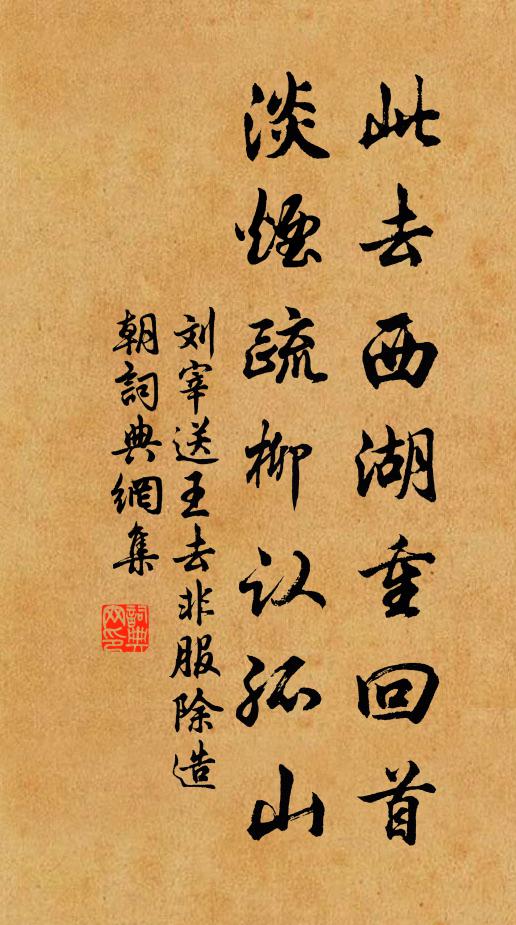 此去西湖重回首
淡煙疏柳认孤山
刘宰送王去非服除造
朝詞典網集
詞典網印